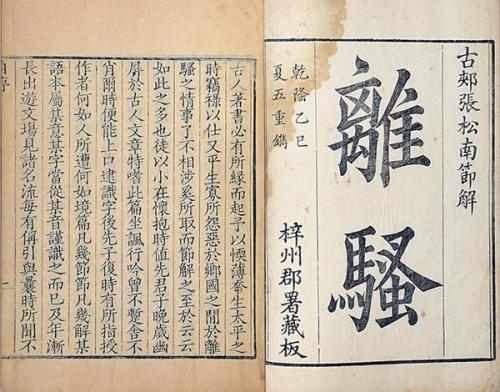 古郟張松南節解
離騷
乾隆乙巳
夏五重鐫
梓州郡署藏板
古人著書必有所緣而起予以愞薄生太平之
時竊祿以仕又平生寡所怨惡於鄉國之間於離
騷之情事了不相涉奚所取而節解之至於云云
如此之多也徒以小在懷抱時值先君子晚歲幽
屏於古人文章特嗜此篇坐諷行吟曾不暫舍不
肖爾時便能上口逮識字後先子復時有所指授
作者何如人所遭何如境篇凡幾節節凡幾解某
語本屬某意某字當從某音謹識之而已及年漸
長出遊文塲見諸名流每有偁引與曩時所聞不